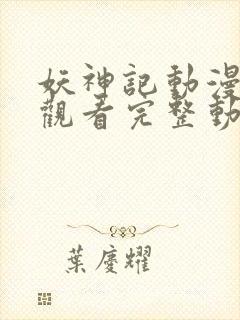 妖神記動漫
觀看完整動
葉慶耀